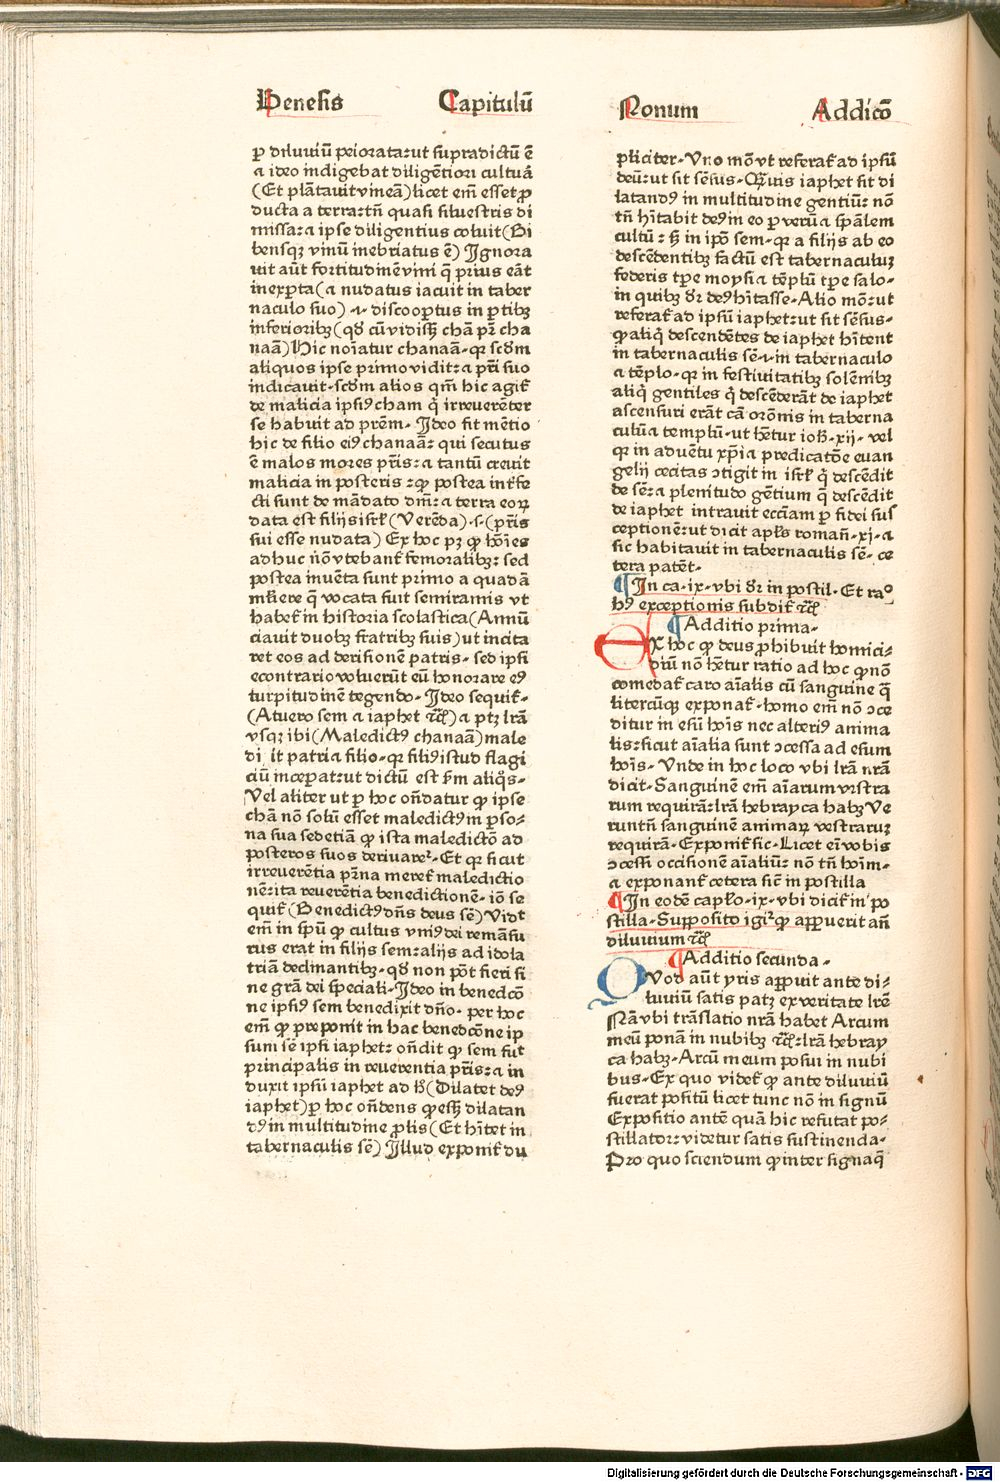 Genesis Capitulū Nonum Addicō
ꝑ diluuiū peiorata:ut supradictū ē
a ideo indigebat diligētiori cultuā
(Et plātauit vineā) licet em̄ esset ꝓ
ducta a terra:tn̄ quasi siluestris di
missa:a ipse diligentius coluit (Bi
bensqʒ vinū inebriatus ē) Ignora
uit aūt fortitudinē vini q̄ prius eāt
inexꝑta (a nudatus iacuit in taber
naculo suo) .i. discooꝑtus in ꝑtibʒ
inferioribʒ (qḋ cū vidissʒ chā pr̄ cha
naā) Hic noīatur chanaā. qꝛ scḋm
aliquos ipse primo vidit: a pr̄i suo
indicauit. scḋm alios qm̄ hic agit᷑
de malicia ipsiꝰ cham q̇ irreuerēter
se habuit ad prēm. Ideo fit mētio
hic de filio eiꝰ chanaā: qui secutus
ē malos mores pr̄is: a tantū creuit
malicia in posteris : ꝙ postea int᷑fe
cti sunt de mādato dn̄i: a terra eoꝝ
data est filijs isrł (Verēda) .s. (pr̄is
sui esse nudata) Ex hoc pʒ ꝙ hōi᷑es
adhuc nō vtebant᷑ femoralibʒ: sed
postea inuēta sunt primo a quadā
mł᷑iere q̄ vocata fuit semiramis vt
habet᷑ in historia scolastica (Annū
ciauit duobʒ fratribʒ suis) ut incita
ret eos ad derisionē patris. sed ipsi
econtrario voluerūt eū honorare eiꝰ
turpitudinē tegendo. Ideo sequit᷑.
(At uero sem a iaphet ⁊c̄) a ptʒ lr̄a
vsqʒ ibi (Maledictꝰ chanaā) male
di it patria filio. qꝛ filiꝰ istud flagi
ciū inceperat:ut dictū est s̄m aliq̊s.
Vel aliter ut ꝑ hoc on̄datur ꝙ ipse
chā nō solū esset maledictꝰ in ꝑso
na sua sed etiā ꝙ ista maledictō ad
posteros suos deriuaret᷑. Et qꝛ sicut
irreuerētia pr̄na meret᷑ maledictio
nē:ita reuerētia benedictionē. iō se
quit᷑ (Benedictꝰ dn̄s deus sē) Vidt
em̄ in spū ꝙ cultus vniꝰ dei remāsu
rus erat in filijs sem: alijs ad idola
triā declinantibʒ. qḋ non pōt fieri si
ne grā dei speciali. Ideo in benedcō
ne ipsiꝰ sem benedixit dn̄o. per hoc
em̄ ꝙ preponit in hac benedcōne ip
sum sē ipsi iaphet: on̄dit ꝙ sem fuit
principalis in reuerentia pr̄is: a in
duxit ipsū iaphet ad ħ (Dilatet deꝰ
iaphet) ꝑ hoc on̄dens ꝙ essʒ dilatan
dꝰ in multitudine ꝓlis (Et hītet in
tabernaculis sē) Illud exponit᷑ du
pliciter. Vno mō vt referat᷑ ad ipsū
deū:ut sit sēsus. Quis iaphet sit di
latandꝰ in multitudine gentiū: nō
tn̄ hītabit deꝰ in eo ꝑ verū a spālem
cultū : ꝫ in ipō sem. qꝛ a filijs ab eo
descēdentibʒ factū est tabernaculuʒ
federis tꝑe moysi a tēplū tꝑe salo.
in quibʒ dr̄ deꝰ hītasse. Alio mō:ut
referat᷑ ad ipsū iaphet:ut sit sēsus.
ꝙ aliq̇ descendētes de iaphet hītent
in tabernaculis sē .i. in tabernaculo
a tēplo. qꝛ in festiuitatibʒ solēnibʒ
aliq̇ gentiles q̇ descēderāt de iaphet
ascensuri erāt cā orōnis in taberna
culū a templū. ut hētur ioħ. xij. vel
qꝛ in aduētu xp̄i a predicatōe euan
gelij cecitas ↄtigit in isrł q̇ descēdit
de sē: a plenitudo gētium q̄ descēdit
de iaphet intrauit ecciam ꝑ fidei sus
ceptionē:ut dicit apłs roman̄. xi. a
sic habitauit in tabernaculis sē. ce
tera patēt.
¶ In ca. ix. vbi dr̄ in postil. Et ra̅o
hꝰ exceptionis subdit᷑ ⁊c̄
¶ Additio prima.
EX hoc ꝙ deus ꝓhibuit homici
diū nō hētur ratio ad hoc ꝙ nō
comedat᷑ caro aīalis cū sanguine q̄
litercūqʒ exponat᷑. homo em̄ nō ↄce
ditur in esū hoīs nec alteriꝰ anima
lis:sicut aīalia sunt ↄcessa ad esum
hoīs. Vnde in hoc loco vbi lr̄a nr̄a
dicit. Sanguinē em̄ aīarum vr̄stra
rum requirā: lr̄a hebrayca habʒ Ve
runtn̄ sanguinē animaꝝ vestraruʒ
requirā. Exponit᷑ sic. Licet eī vobis
ↄcessi occisionē aīaliū: nō tn̄ hoīm.
a exponant᷑ cetera sic̄ in postilla
¶ In eodē capl̄o. ix. vbi dicit᷑ in po
stilla. Supposito igit᷑ ꝙ apparuerit an̄
diluuium ⁊c̄
¶ Additio secunda.
QVod aūt yris apparuit ante di
luuiū satis patʒ ex veritate lr̄e
Nā vbi trāslatio nr̄a habet Arcum
meū ponā in nubibʒ ⁊c̄. lr̄a hebray
ca habʒ. Arcū meum posui in nubi
bus. Ex quo videt᷑ ꝙ ante diluuiū
fuerat positū licet tunc nō in signū
Expositio antē quā hic refutat po
stillator: videtur satis sustinenda.
Pro quo sciendum ꝙ inter signa q̄
Digitalisierung gefördert durch die Deutsche Forschungsgemeinschaft - DFG